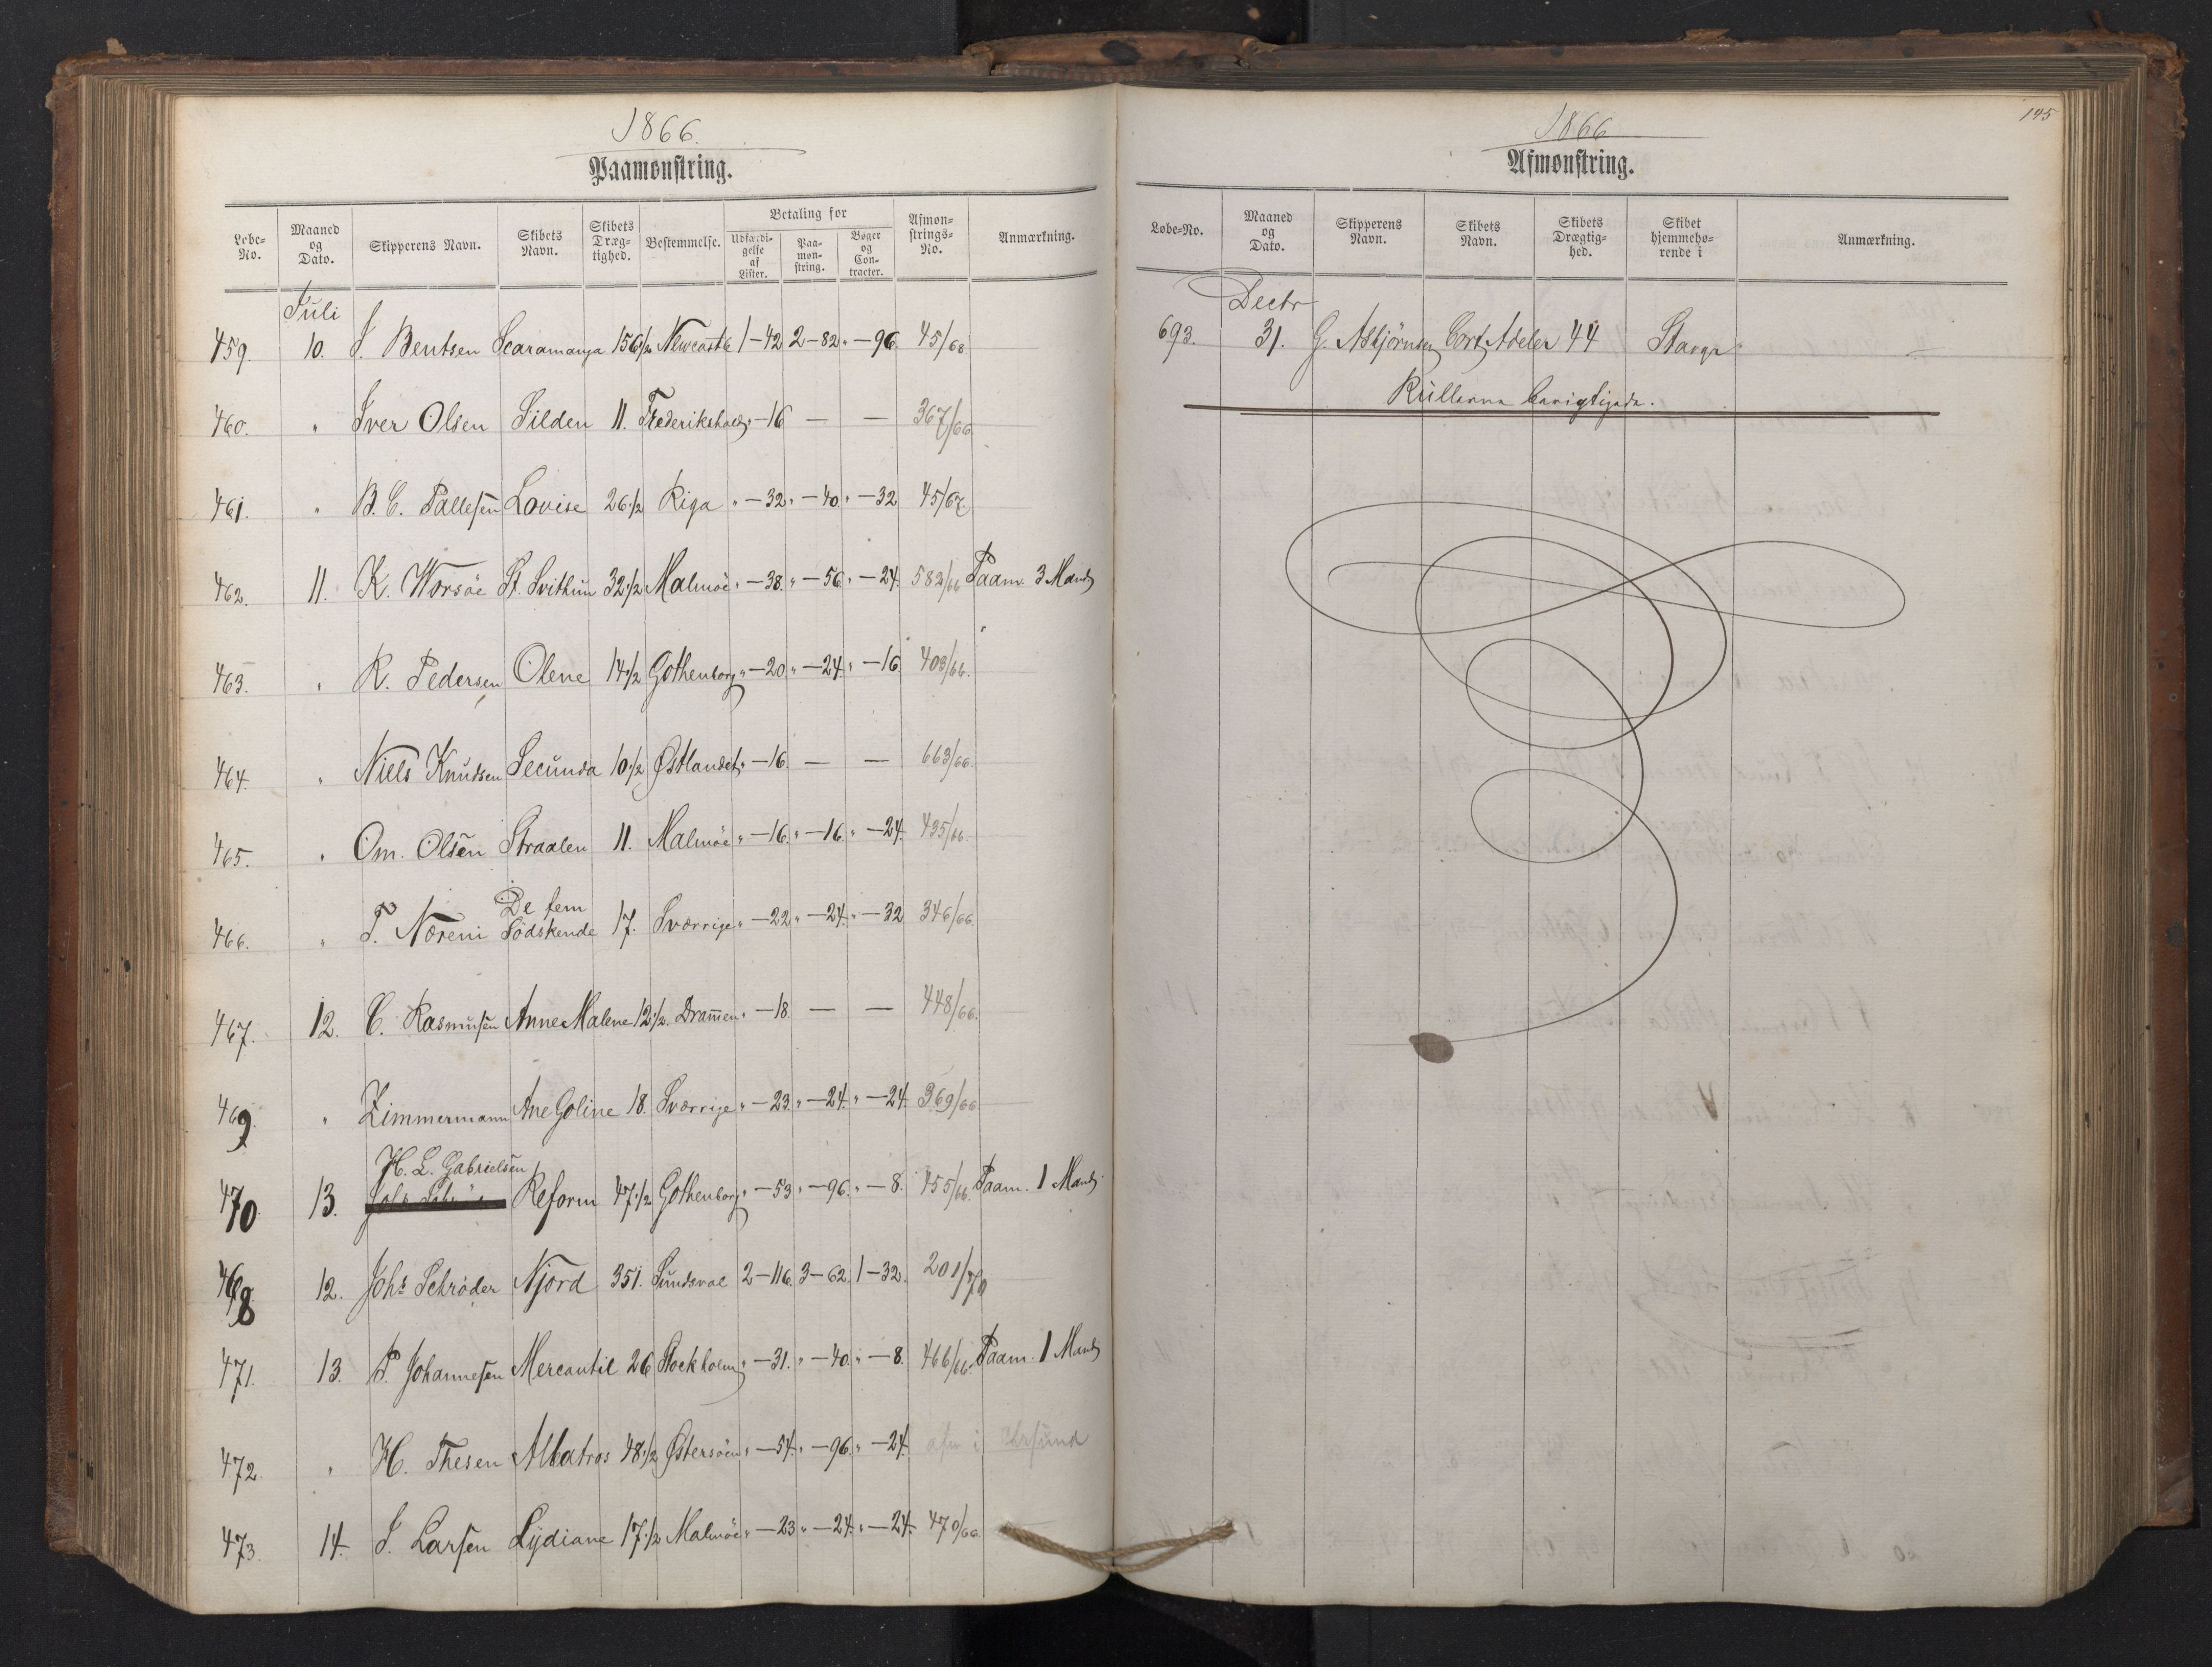 1866.
Paamønstring.
Løbe-No. Maaned og Dato. Skipperens Navn. Skibets Navn. Skibets Dræg-tighed. Bestemmelse. Betaling for Udfærdi-gelse af Lister. Paa-møn-string. Bøger og Con-tracter. Afmøn-strings-No. Anmærkning.
Juli
459. 10. J. Bentsen Scaramanga 156 1/2 Newcastle 1-42 2-82 " -96. 45/68
460. " Iver Olsen Silden 11. Frederikshald " -16 — — 367/66
461. " B. C. Pallesen Lovise 26 1/2 Riga " -32 " -40 " -32 45/67
462. 11. K. Worsöe St. Svithun 32 1/2 Malmöe " -38. " -56 " -24. 582/66 Paam. 3 Mand
463. " R. Pedersen Olene 14 1/2 Gothenborg " -20. " -24. " -16. 403/66.
464. " Niels Knudsen Secunda 10 1/2 Østlandet " -16. — — 663/66.
465. " Om. Olsen Straalen 11. Malmöe " -16. " -16. " -24. 435/66.
De fem
466. " P. Nøreni Södskende 17. Sværrige " -22 " -24. " -32 346/66
467. 12. C. Rasmusen Anne Malene 12 1/2. Dram̄en " -18. — — 448/66.
469. " Zimmermann Ane Goline 18. Sværrige " -23. " -24. " -24. 369/66
H. L. Gabrielsen
470 13. Reform 47 1/2 Gothenborg " -53 " -96. " -8. 455/66. Paam. 1 Mand
468 12. Johs Schröder Njord 351. Sundsval 2-116. 3-62. 1-32. 201/70
471. 13. P. Johannesen Mercantil 26 Stockholm " -31. " -40. " -8. 466/66. Paam. 1 Mand
472. " H. Thesen Albatros 48 1/2 Østersöen " -54. " -96. " -24. afm i
473. 14. J. Larsen Lydiane 17 1/2 Malmöe " -23 " -24. " -24. 470/66.
195
1866
Afmønstring.
Løbe-No. Maaned og Dato. Skipperens Navn. Skibets Navn. Skibets Drægtig-hed. Skibet hjemmehø-rende i Anmærkning.
Decbr
693. 31. G. Asbjörnsen Cort Adeler 44 Stavgr
Rullerne berigtigede.